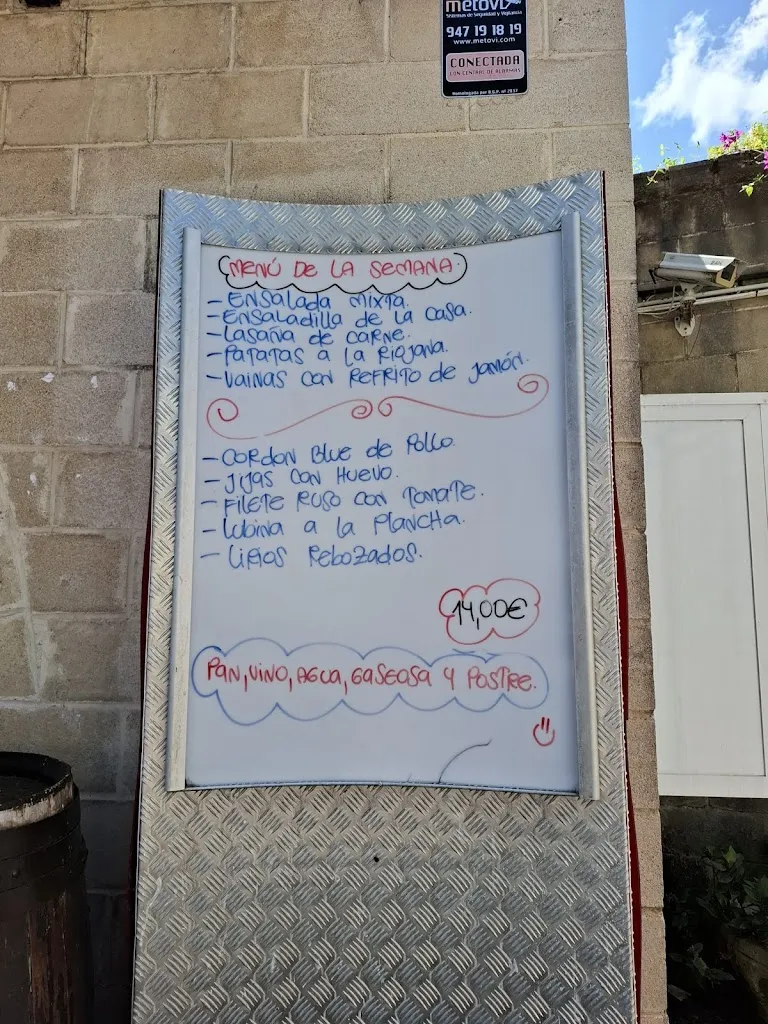 metovi
Sistemas de Seguridad y Vigilancia
947 19 18 19
www.metovi.com
CONECTADA
CON CENTRAL DE ALARMAS
MENÚ DE LA SEMANA.
- ENSALADA MIXTA.
- ENSALADILLA DE LA CASA.
- LASAÑA DE CARNE.
- PATATAS A LA RIOJANA.
- VAINAS CON REFRITO DE JAMÓN.
- CORDON BLUE DE POLLO.
- JIJAS CON HUEVO.
- FILETE RUSO CON TOMATE.
- LUBINA A LA PLANCHA.
- LIRIOS REBOZADOS.
14,00€
PAN, VINO, AGUA, GASEOSA Y POSTRE.